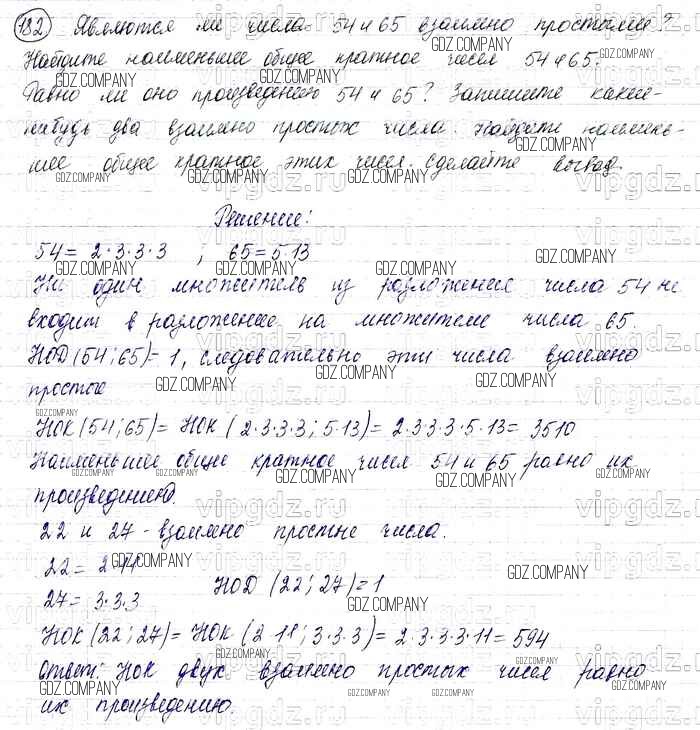 182 Являются ли числа 54 и 65 взаимно простыми?
Найдите наименьшее общее кратное чисел 54 и 65.
Равно ли оно произведению 54 и 65? Запишите какие-
нибудь два взаимно простых числа. Найдите наимень-
шее общее кратное этих чисел. Сделайте вывод.
Решение:
54 = 2·3·3·3 ; 65 = 5·13
Ни один множитель из разложения числа 54 не
входит в разложение на множители числа 65.
НОД (54; 65) = 1, следовательно эти числа взаимно
простые
НОК (54; 65) = НОК (2·3·3·3; 5·13) = 2·3·3·3·5·13 = 3510
Наименьшее общее кратное чисел 54 и 65 равно их
произведению.
22 и 27 - взаимно простые числа.
22 = 2·11
27 = 3·3·3 НОД (22; 27) = 1
НОК (22; 27) = НОК (2·11; 3·3·3) = 2·3·3·3·11 = 594
Ответ: НОК двух взаимно простых чисел равно
их произведению.
GDZ.COMPANY
vipgdz.ru